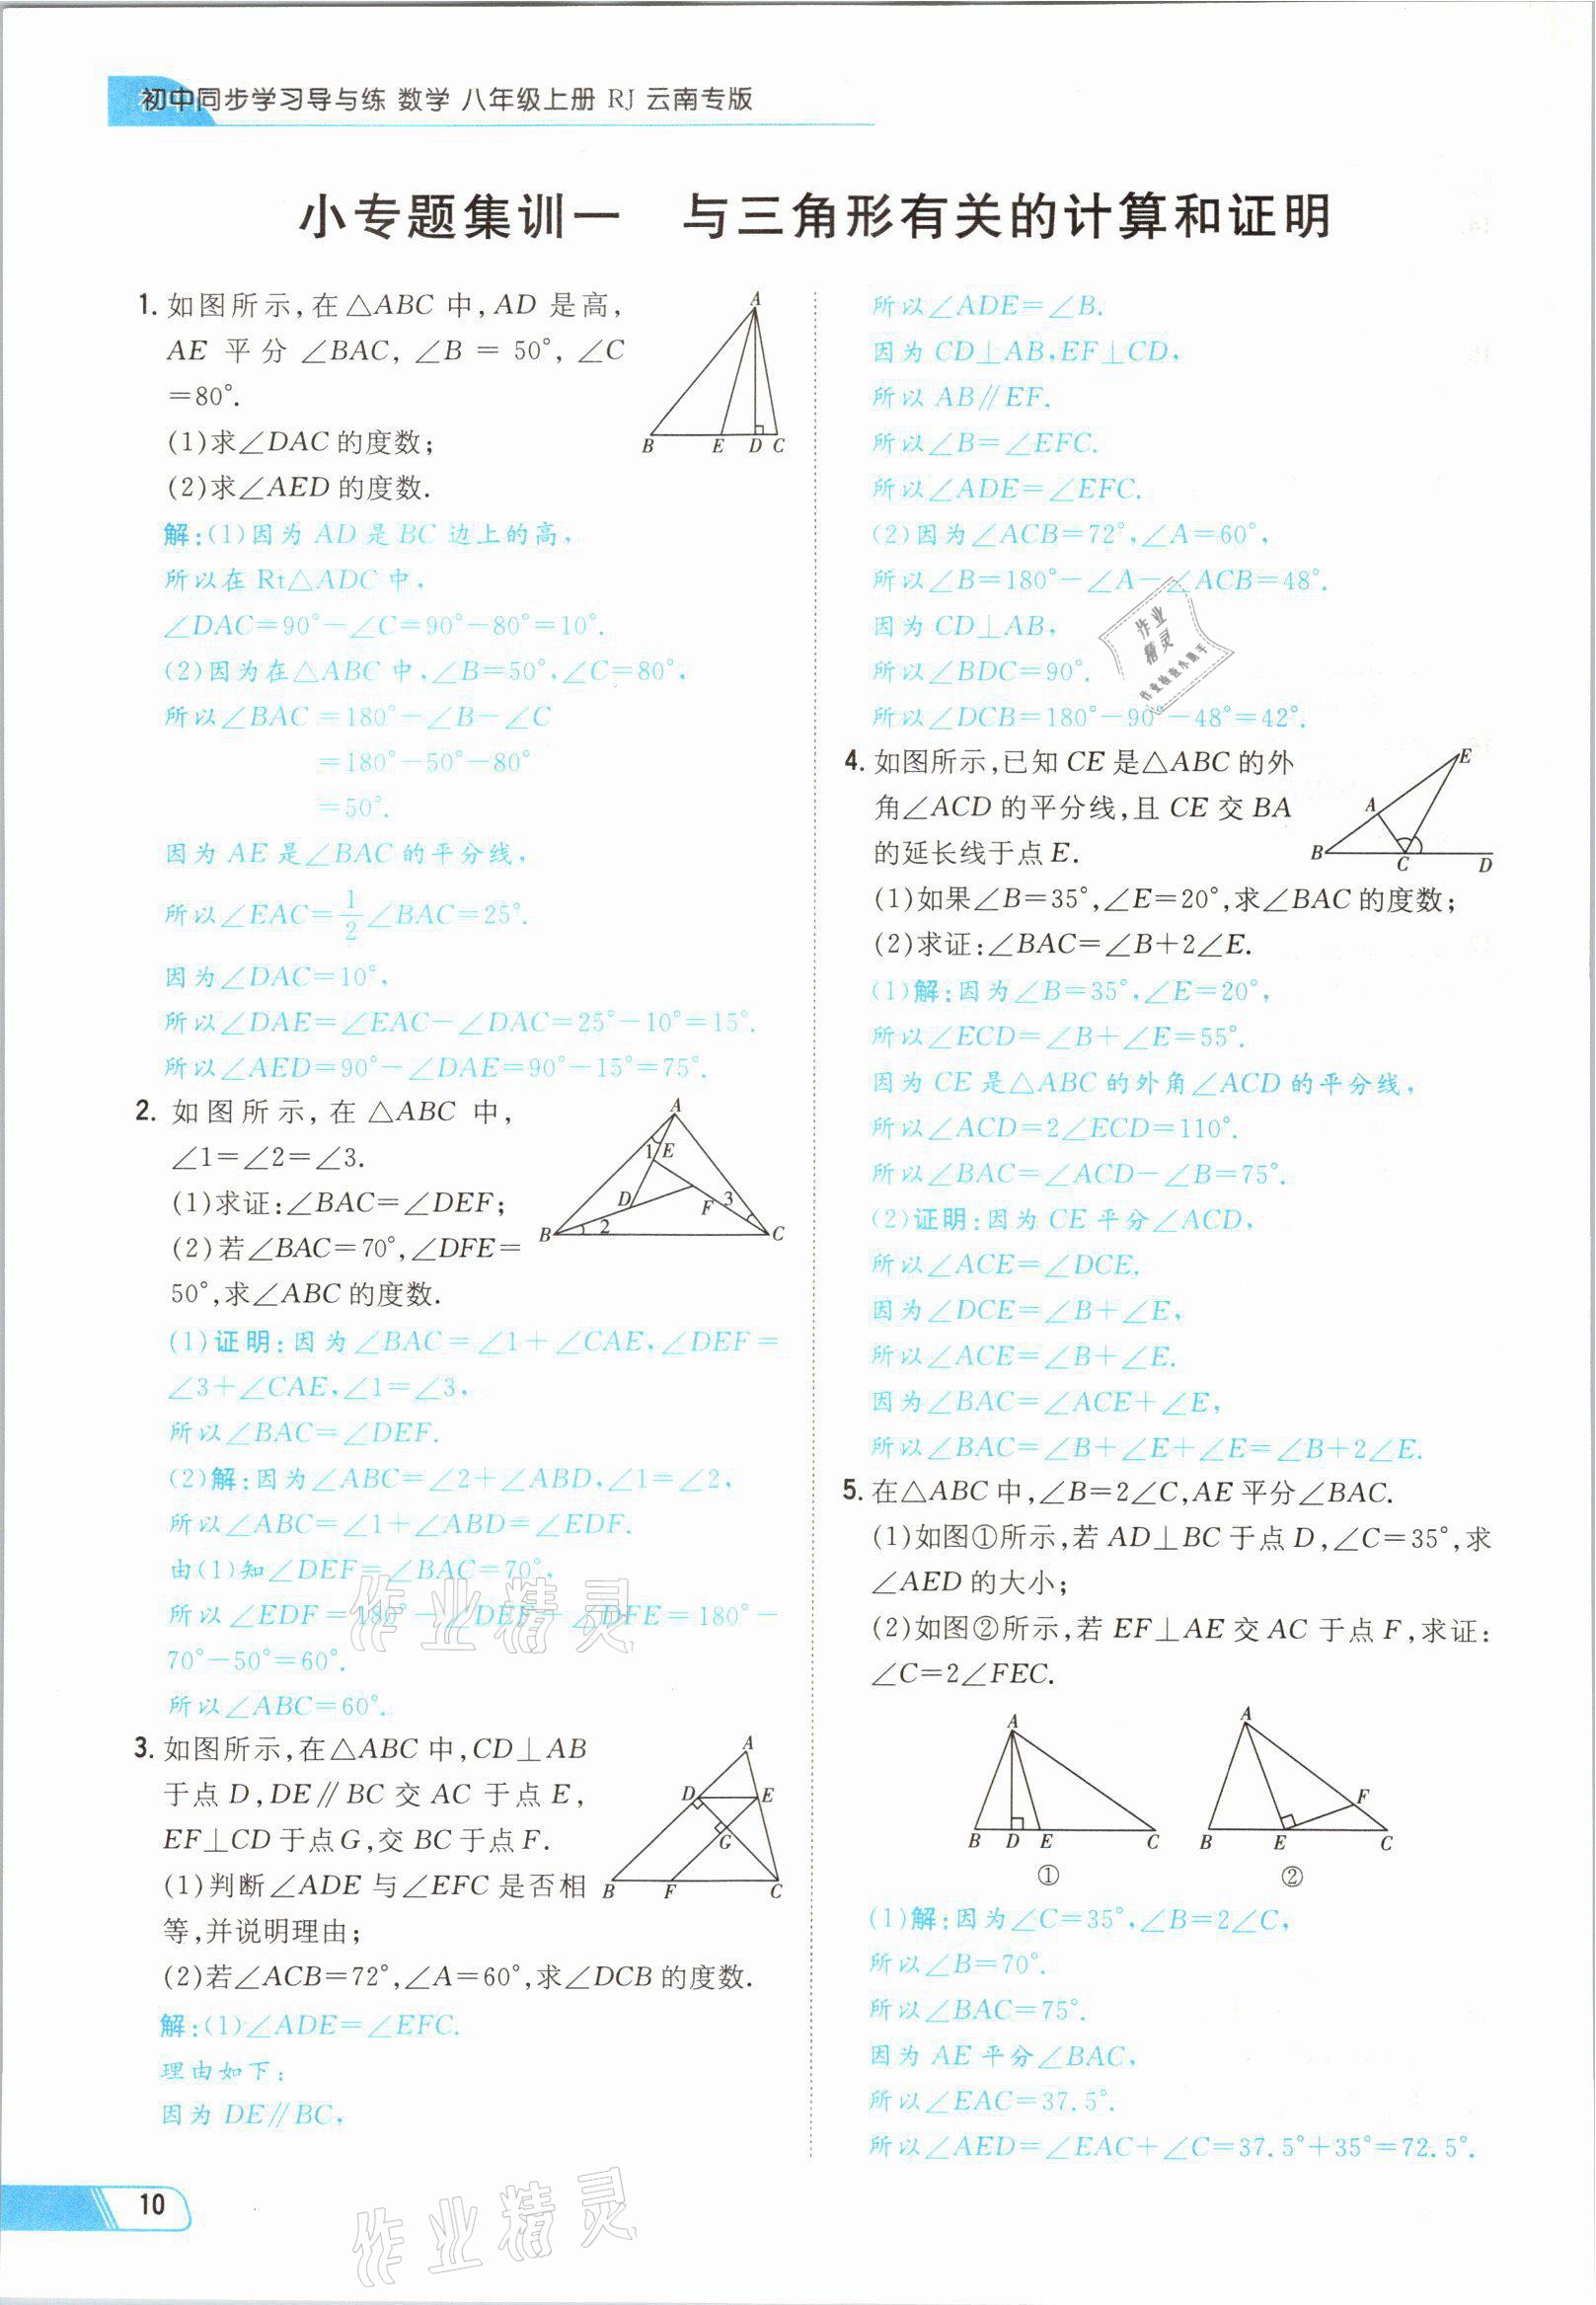 初中同步学习导与练 数学 八年级上册 RJ 云南专版
小专题集训一 与三角形有关的计算和证明
1. 如图所示,在△ABC 中,AD 是高,
AE 平分 ∠BAC, ∠B = 50°, ∠C
=80°.
(1)求∠DAC 的度数;
(2)求∠AED 的度数.
A
B E D C
解:(1)因为 AD 是 BC 边上的高,
所以在 Rt△ADC 中,
∠DAC=90°-∠C=90°-80°=10°.
(2)因为在△ABC 中,∠B=50°,∠C=80°,
所以∠BAC =180°-∠B-∠C
=180°-50°-80°
=50°.
因为 AE 是∠BAC 的平分线,
所以∠EAC=1/2∠BAC=25°.
因为∠DAC=10°,
所以∠DAE=∠EAC-∠DAC=25°-10°=15°.
所以∠AED=90°-∠DAE=90°-15°=75°.
2. 如图所示, 在 △ABC 中,
∠1=∠2=∠3.
(1)求证:∠BAC=∠DEF;
(2)若∠BAC=70°,∠DFE=
50°,求∠ABC 的度数.
A
1 E
D F 3
B 2 C
(1)证明:因为∠BAC=∠1+∠CAE,∠DEF=
∠3+∠CAE,∠1=∠3,
所以∠BAC=∠DEF.
(2)解:因为∠ABC=∠2+∠ABD,∠1=∠2,
所以∠ABC=∠1+∠ABD=∠EDF.
由(1)知∠DEF=∠BAC=70°,
所以∠EDF=180°-∠DEF-∠DFE=180°-
70°-50°=60°.
所以∠ABC=60°.
3. 如图所示,在△ABC 中,CD⊥AB
于点 D,DE∥BC 交 AC 于点 E,
EF⊥CD 于点G,交 BC 于点 F.
(1)判断∠ADE 与∠EFC 是否相
等,并说明理由;
(2)若∠ACB=72°,∠A=60°,求∠DCB 的度数.
A
D E
G
B F C
解:(1)∠ADE=∠EFC.
理由如下:
因为 DE∥BC,
所以∠ADE=∠B.
因为 CD⊥AB,EF⊥CD,
所以 AB∥EF.
所以∠B=∠EFC.
所以∠ADE=∠EFC.
(2)因为∠ACB=72°,∠A=60°,
所以∠B=180°-∠A-∠ACB=48°.
因为 CD⊥AB,
所以∠BDC=90°.
所以∠DCB=180°-90°-48°=42°.
4. 如图所示,已知 CE 是△ABC 的外
角∠ACD 的平分线,且 CE 交 BA
的延长线于点 E.
(1)如果∠B=35°,∠E=20°,求∠BAC 的度数;
(2)求证:∠BAC=∠B+2∠E.
E
A
B C D
(1)解:因为∠B=35°,∠E=20°,
所以∠ECD=∠B+∠E=55°.
因为 CE 是△ABC 的外角∠ACD 的平分线,
所以∠ACD=2∠ECD=110°.
所以∠BAC=∠ACD-∠B=75°.
(2)证明:因为 CE 平分∠ACD,
所以∠ACE=∠DCE.
因为∠DCE=∠B+∠E,
所以∠ACE=∠B+∠E.
因为∠BAC=∠ACE+∠E,
所以∠BAC=∠B+∠E+∠E=∠B+2∠E.
5. 在△ABC 中,∠B=2∠C,AE 平分∠BAC.
(1)如图①所示,若 AD⊥BC 于点 D,∠C=35°,求
∠AED 的大小;
(2)如图②所示,若 EF⊥AE 交 AC 于点 F,求证:
∠C=2∠FEC.
A A
F
B D E C B E C
① ②
(1)解:因为∠C=35°,∠B=2∠C,
所以∠B=70°.
所以∠BAC=75°.
因为 AE 平分∠BAC,
所以∠EAC=37.5°.
所以∠AED=∠EAC+∠C=37.5°+35°=72.5°.
10
作业精灵
作业精灵
作业
精灵
作业检查小助手